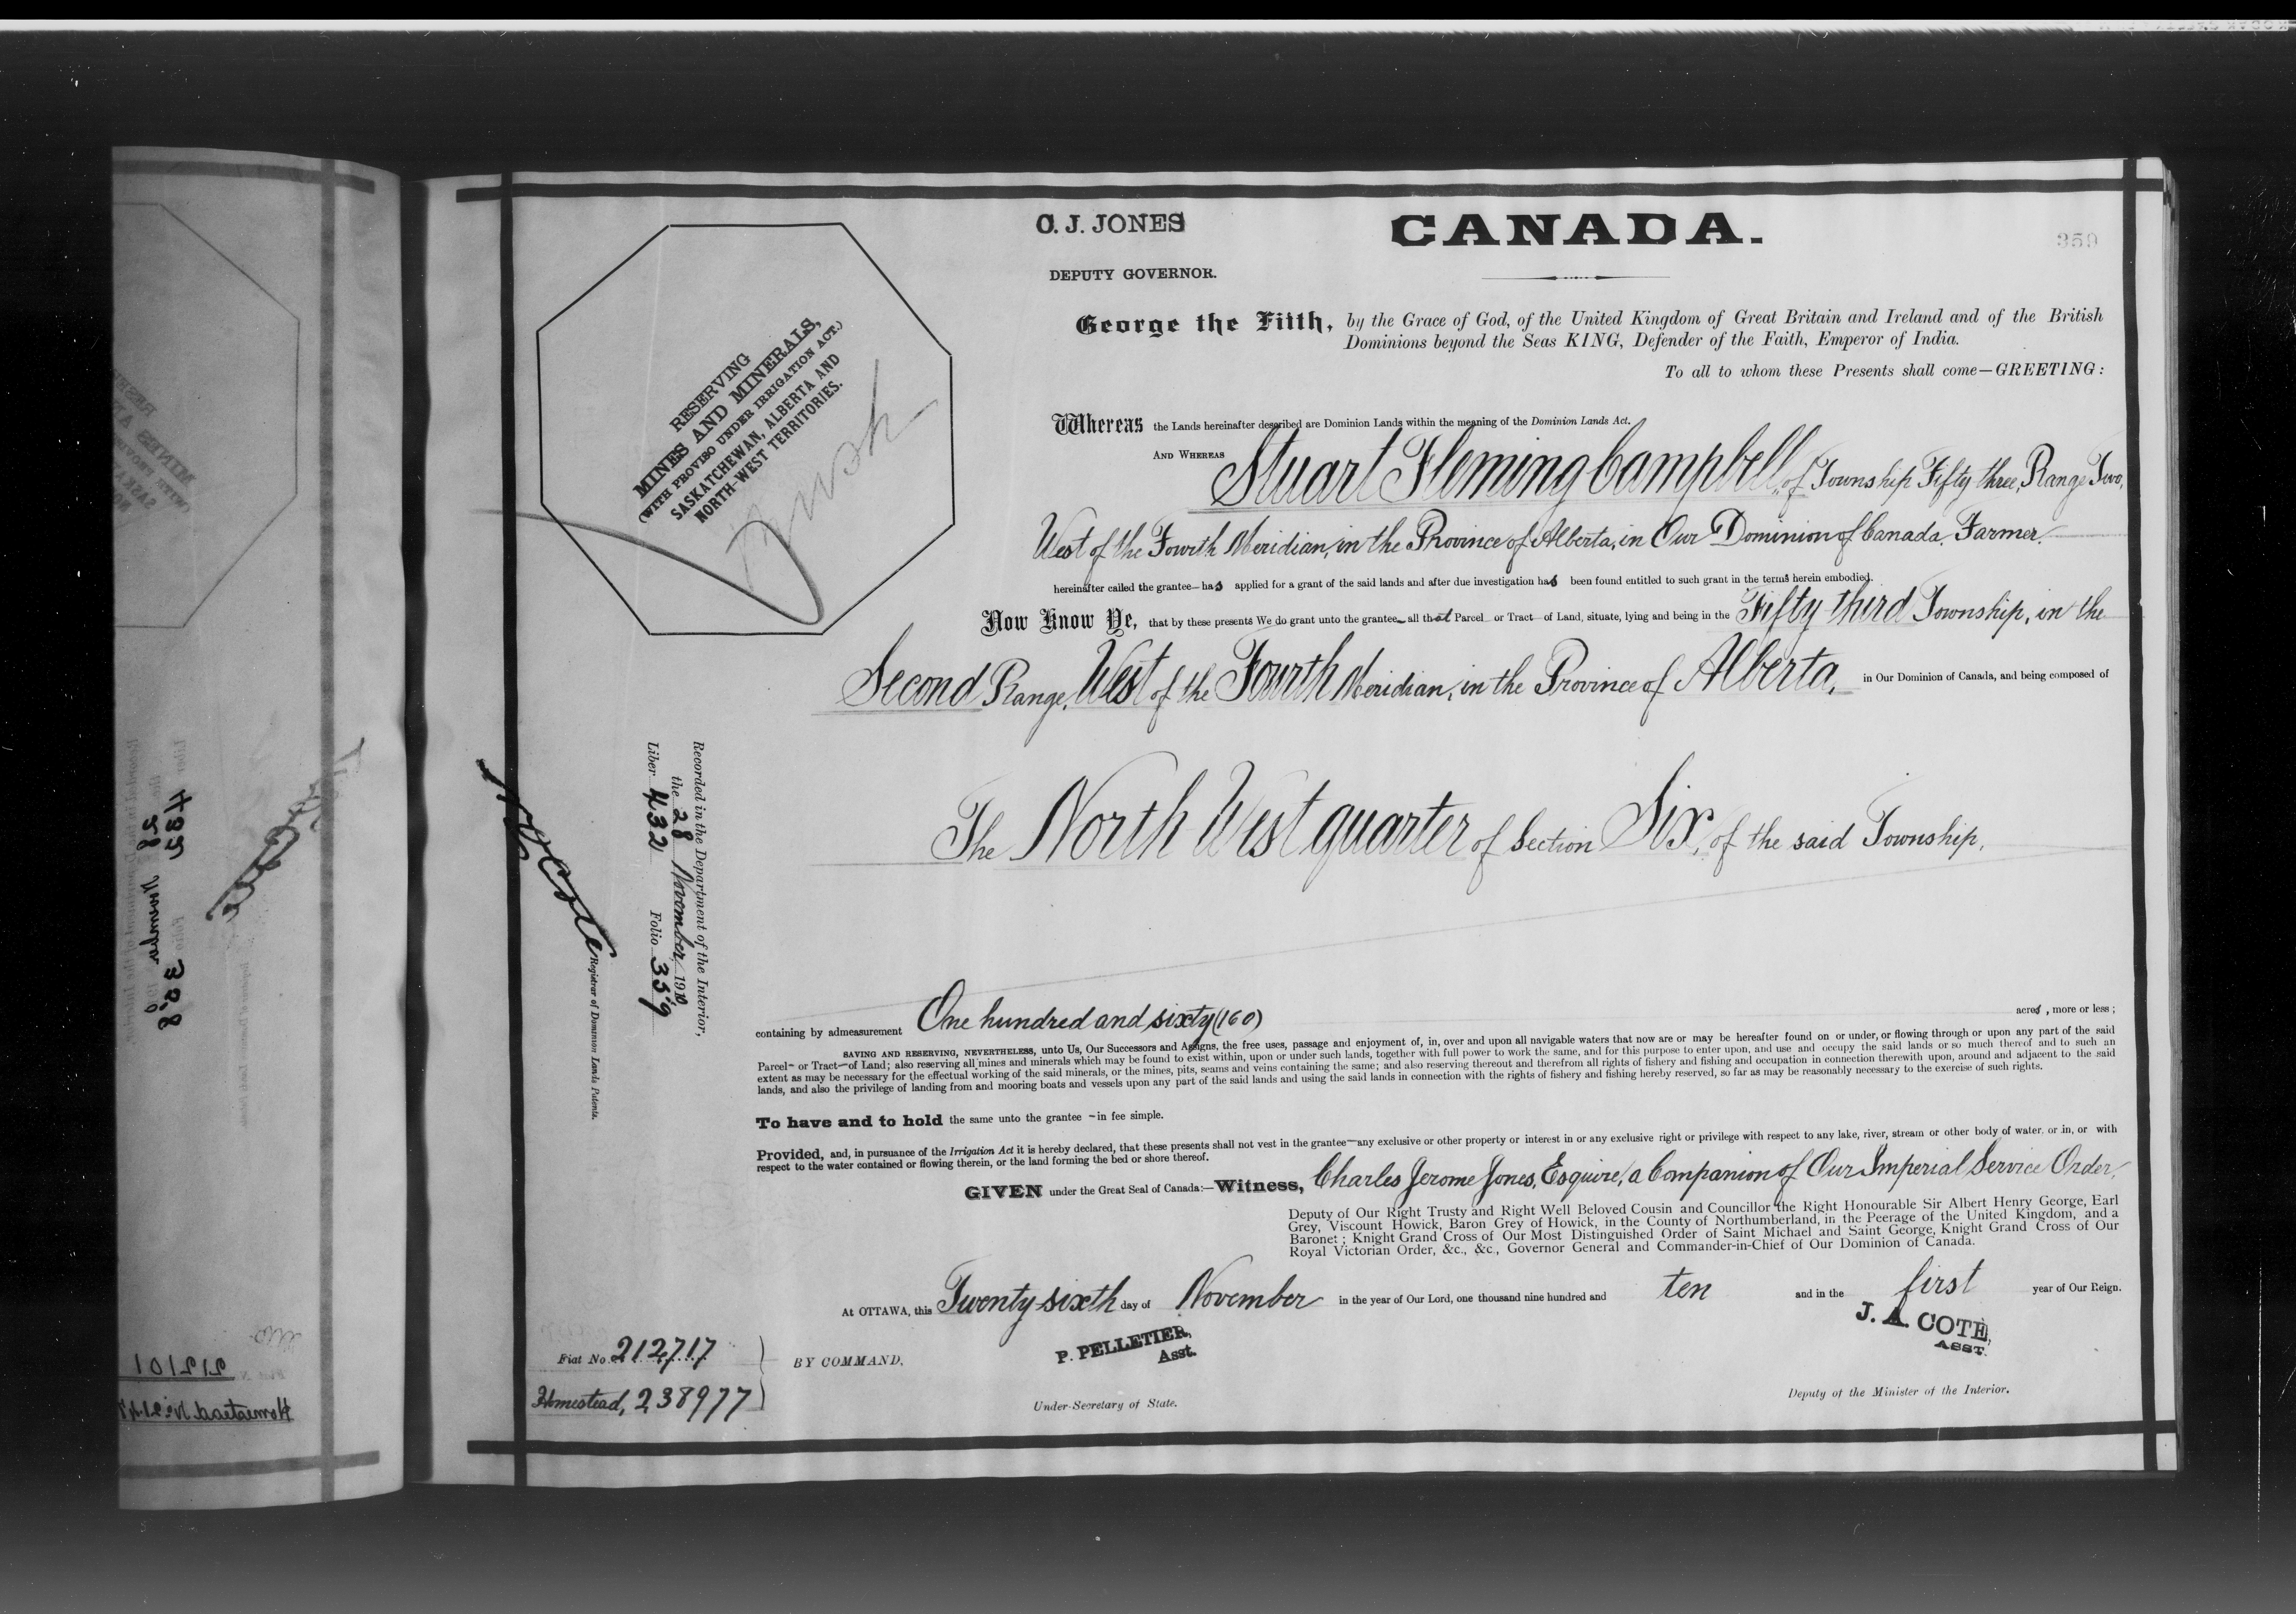 C. J. JONES
CANADA.
359
DEPUTY GOVERNOR.
George the Fifth, by the Grace of God, of the United Kingdom of Great Britain and Ireland and of the British
Dominions beyond the Seas KING, Defender of the Faith, Emperor of India.
To all to whom these Presents shall come—GREETING:
RESERVING
MINES AND MINERALS,
(WITH PROVISO UNDER IRRIGATION ACT.)
SASKATCHEWAN, ALBERTA AND
NORTH-WEST TERRITORIES.
Whereas the Lands hereinafter described are Dominion Lands within the meaning of the Dominion Lands Act.
AND WHEREAS Stuart Fleming Campbell, of Township Fifty three, Range Two,
West of the Fourth Meridian, in the Province of Alberta, in Our Dominion of Canada. Farmer.
hereinafter called the grantee— has applied for a grant of the said lands and after due investigation has been found entitled to such grant in the terms herein embodied.
Now Know Ye, that by these presents We do grant unto the grantee— all that Parcel or Tract of Land, situate, lying and being in the Fifty third Township, in the
Second Range, West of the Fourth Meridian, in the Province of Alberta, in Our Dominion of Canada, and being composed of
The North West quarter of Section Six, of the said Township,
Recorded in the Department of the Interior,
the 28 November 1910
Liber 432 Folio 359
Registrar of Dominion Lands Patents.
containing by admeasurement One hundred and sixty (160) acres, more or less;
SAVING AND RESERVING, NEVERTHELESS, unto Us, Our Successors and Assigns, the free uses, passage and enjoyment of, in, over and upon all navigable waters that now are or may be hereafter found on or under, or flowing through or upon any part of the said
Parcel— or Tract—of Land; also reserving all mines and minerals which may be found to exist within, upon or under such lands, together with full power to work the same, and for this purpose to enter upon, and use and occupy the said lands or so much thereof and to such an
extent as may be necessary for the effectual working of the said minerals, or the mines, pits, seams and veins containing the same; and also reserving thereout and therefrom all rights of fishery and fishing and occupation in connection therewith upon, around and adjacent to the said
lands, and also the privilege of landing from and mooring boats and vessels upon any part of the said lands and using the said lands in connection with the rights of fishery and fishing hereby reserved, so far as may be reasonably necessary to the exercise of such rights.
To have and to hold the same unto the grantee —in fee simple.
Provided, and, in pursuance of the Irrigation Act it is hereby declared, that these presents shall not vest in the grantee—any exclusive or other property or interest in or any exclusive right or privilege with respect to any lake, river, stream or other body of water, or in, or with
respect to the water contained or flowing therein, or the land forming the bed or shore thereof.
GIVEN under the Great Seal of Canada:—Witness, Charles Jerome Jones, Esquire, a Companion of Our Imperial Service Order,
Deputy of Our Right Trusty and Right Well Beloved Cousin and Councillor the Right Honourable Sir Albert Henry George, Earl
Grey, Viscount Howick, Baron Grey of Howick, in the County of Northumberland, in the Peerage of the United Kingdom, and a
Baronet; Knight Grand Cross of Our Most Distinguished Order of Saint Michael and Saint George, Knight Grand Cross of Our
Royal Victorian Order, &c., &c., Governor General and Commander-in-Chief of Our Dominion of Canada.
At OTTAWA, this Twenty sixth day of November in the year of Our Lord, one thousand nine hundred and ten and in the first year of Our Reign.
J. A. COTE,
ASST.
P. PELLETIER,
Asst.
Fiat No. 212717
BY COMMAND,
Homestead, 238977
Under-Secretary of State.
Deputy of the Minister of the Interior.